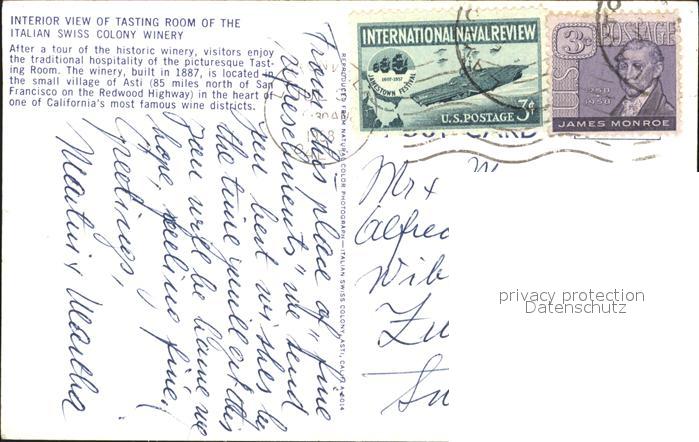 INTERIOR VIEW OF TASTING ROOM OF THE
ITALIAN SWISS COLONY WINERY
After a tour of the historic winery, visitors enjoy
the traditional hospitality of the picturesque Tast-
ing Room. The winery, built in 1887, is located at
the small village of Asti (85 miles north of San
Francisco on the Redwood Highway) in the heart of
one of California's most famous wine districts.
From this place of "fine
refreshments" we send
you best wishes by
the time you will get this
you will be home we
hope, feeling fine,
greetings,
Martin & Martha
REPRODUCED FROM NATURAL COLOR PHOTOGRAPH—ITALIAN SWISS COLONY, ASTI, CALIF.
INTERNATIONAL NAVAL REVIEW
1607-1957
JAMESTOWN FESTIVAL
U.S. POSTAGE 3¢
US POSTAGE
3¢
1758
1958
JAMES MONROE
POST CARD
Mr &
Alfred
Wil
Zu
privacy protection
Datenschutz